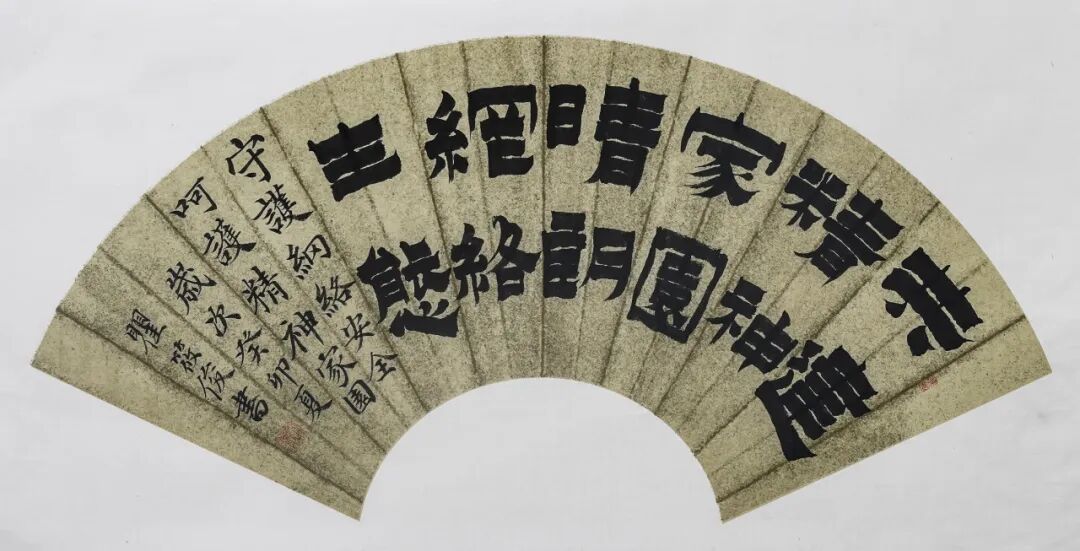 共建
精神
家園
晴朗
網絡
生態
守護網絡安全
呵護精神家園
歲次癸卯夏
瞿筱俊書